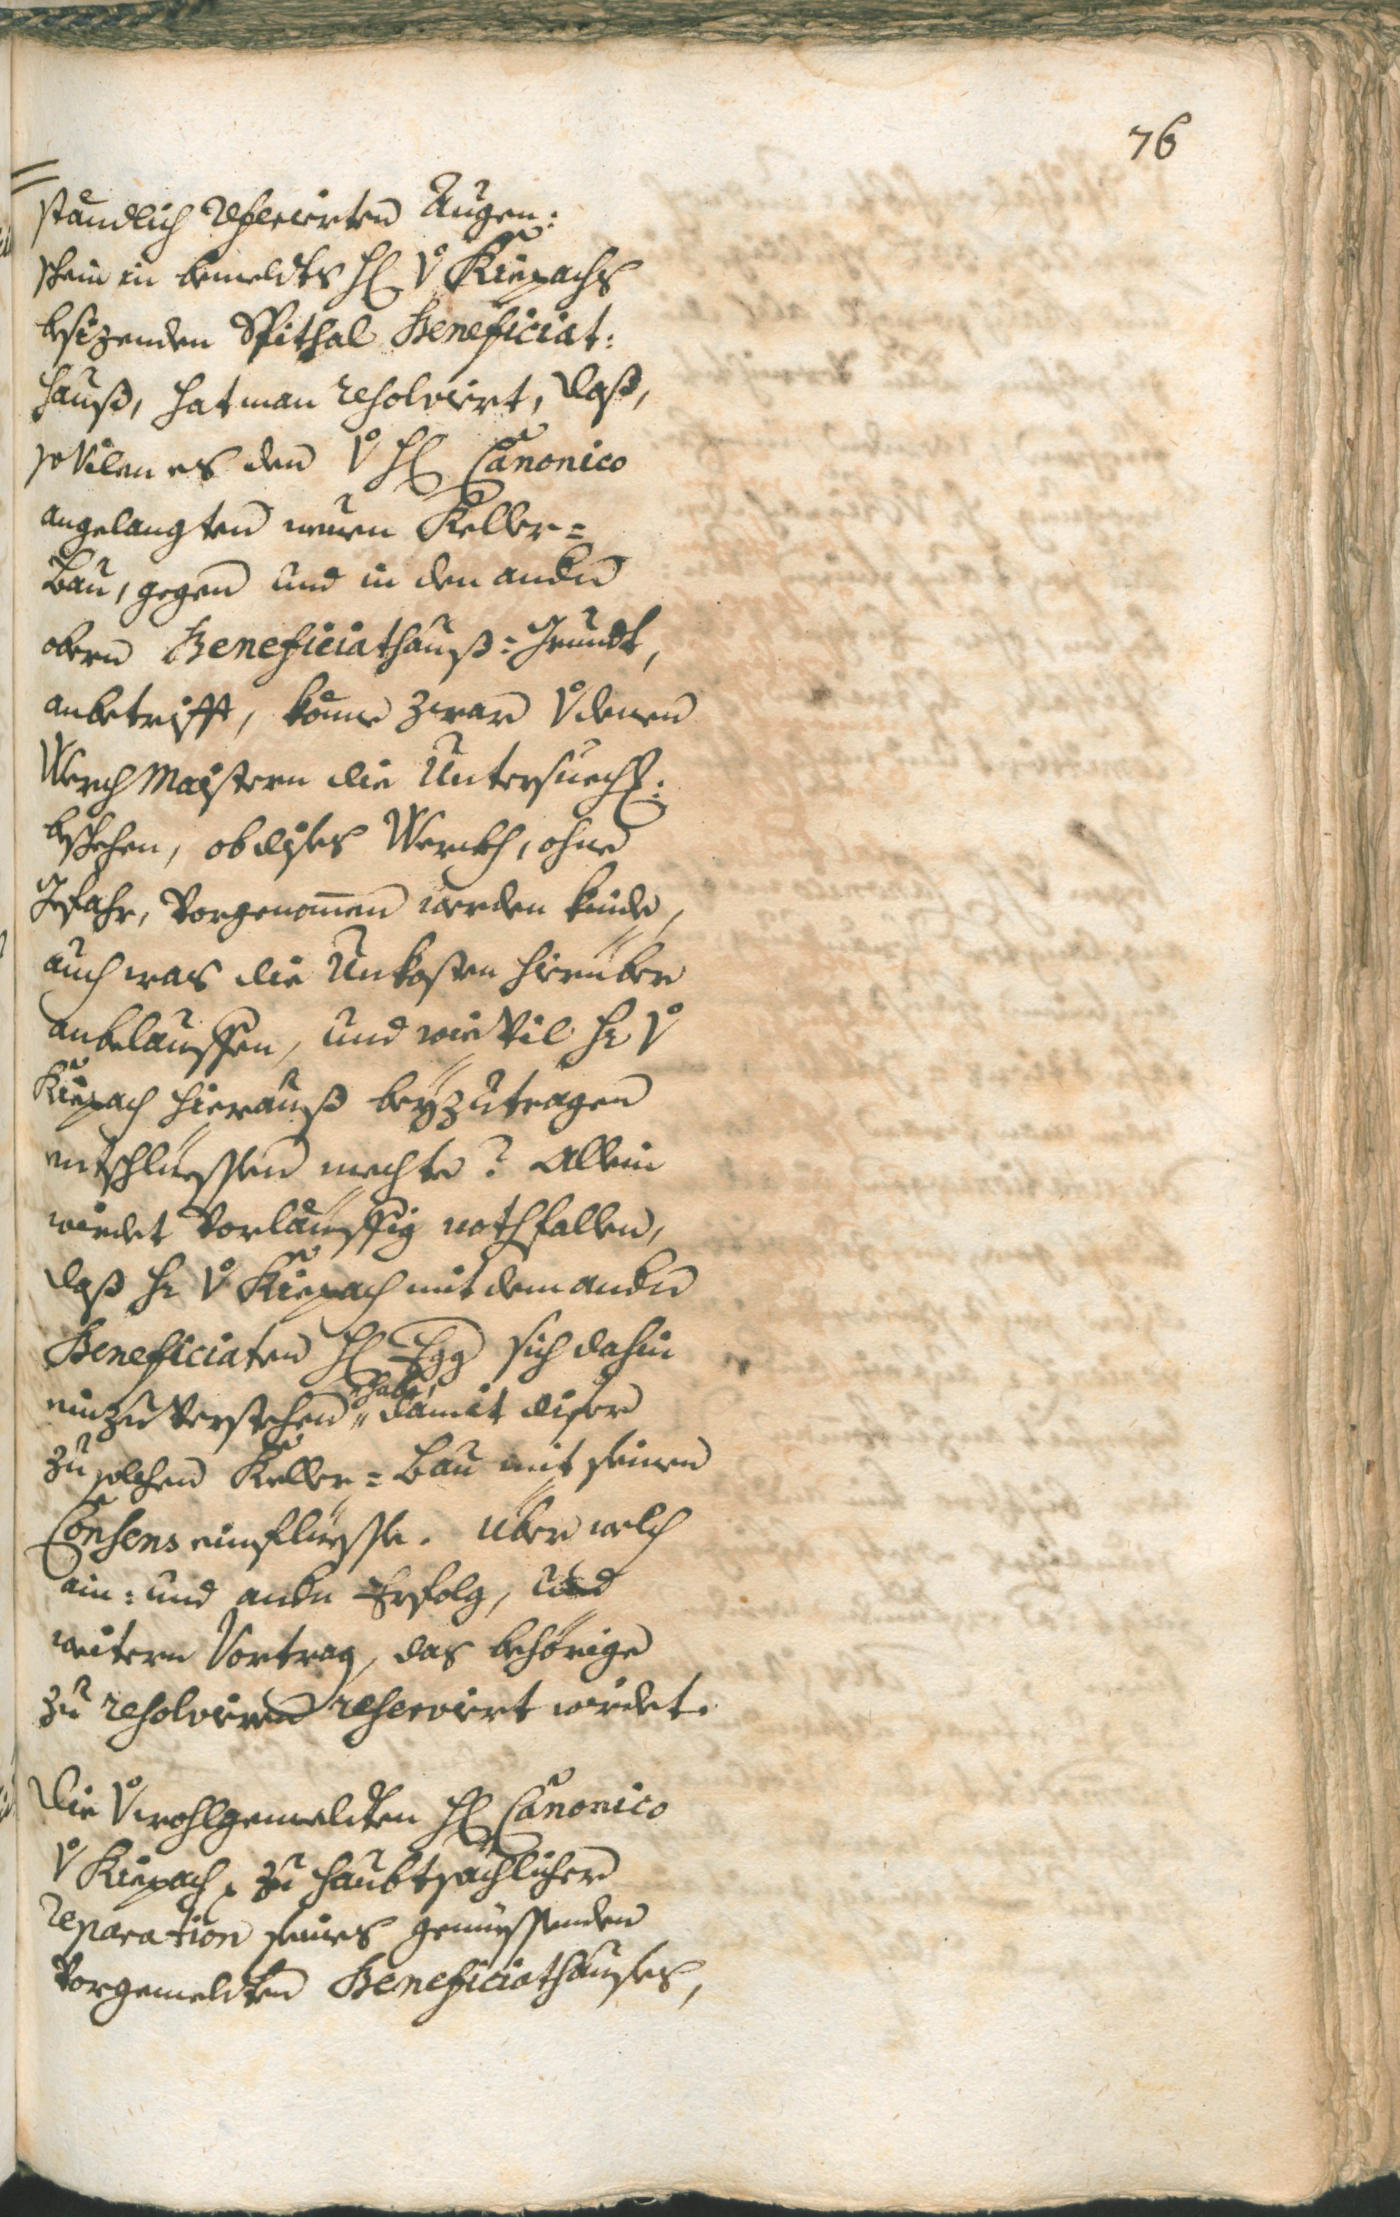 76
ständlich referierten Augen:
schein in bemeldts H: v Kiepachs
besizenden Spithal Beneficiat:
hauß, hat man resolviert, daß,
so vilen es den v H: Canonico
angelangten neuen Keller=
Bau, gegen und in den andern
obern Beneficiathauß=Grundt,
anbetrifft, könne zwar v denen
Werch Maistern die Untersuech:
beschehen, ob dises Werckh, ohne
Gefahr, vorgenommen werden künde,
auch was die Unkosten hierüber
anbelauffen, und wie vil H: v
Kiepach hierauß beyzutragen
entschlüessen mechte? Allein
wirdet vorläuffig nothfallen,
daß H: v Kiepach mit dem andern
Beneficiaten H: Egg sich dahin
einzuverstehen habe, damit diser
zu solchen Keller=Bau mit seinen
Consens einflüesse. Über welch
ain: und andern Erfolg, und
weitern Vortrag, das behörige
zu resolvieren reserviert wirdet.
Die v wohlgemeldten H: Canonico
v Kiepach, zu haubtsächlicher
reparation seines genüessenden
vorgemeldten Beneficiathauses,